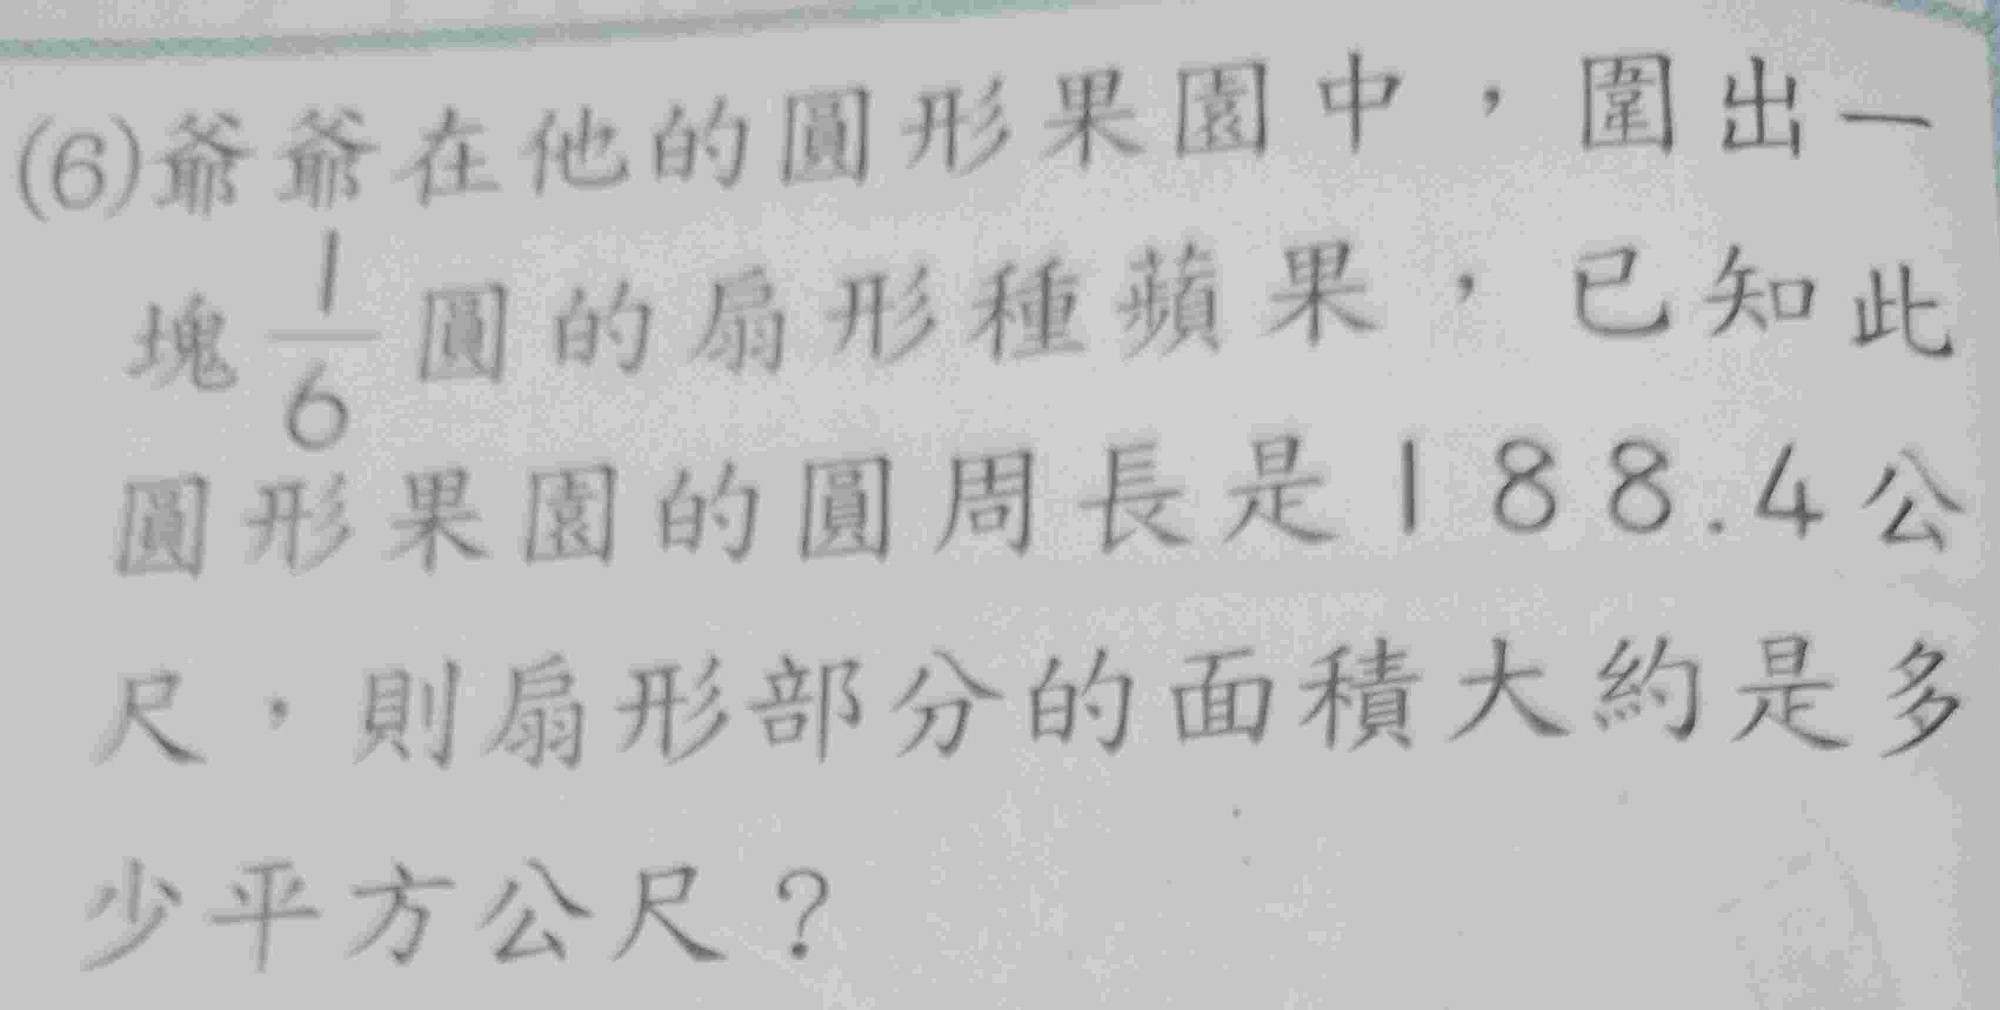 (6)爺爺在他的圓形果園中，圍出一
塊1/6圓的扇形種蘋果，已知此
圓形果園的圓周長是188.4公
尺，則扇形部分的面積大約是多
少平方公尺？